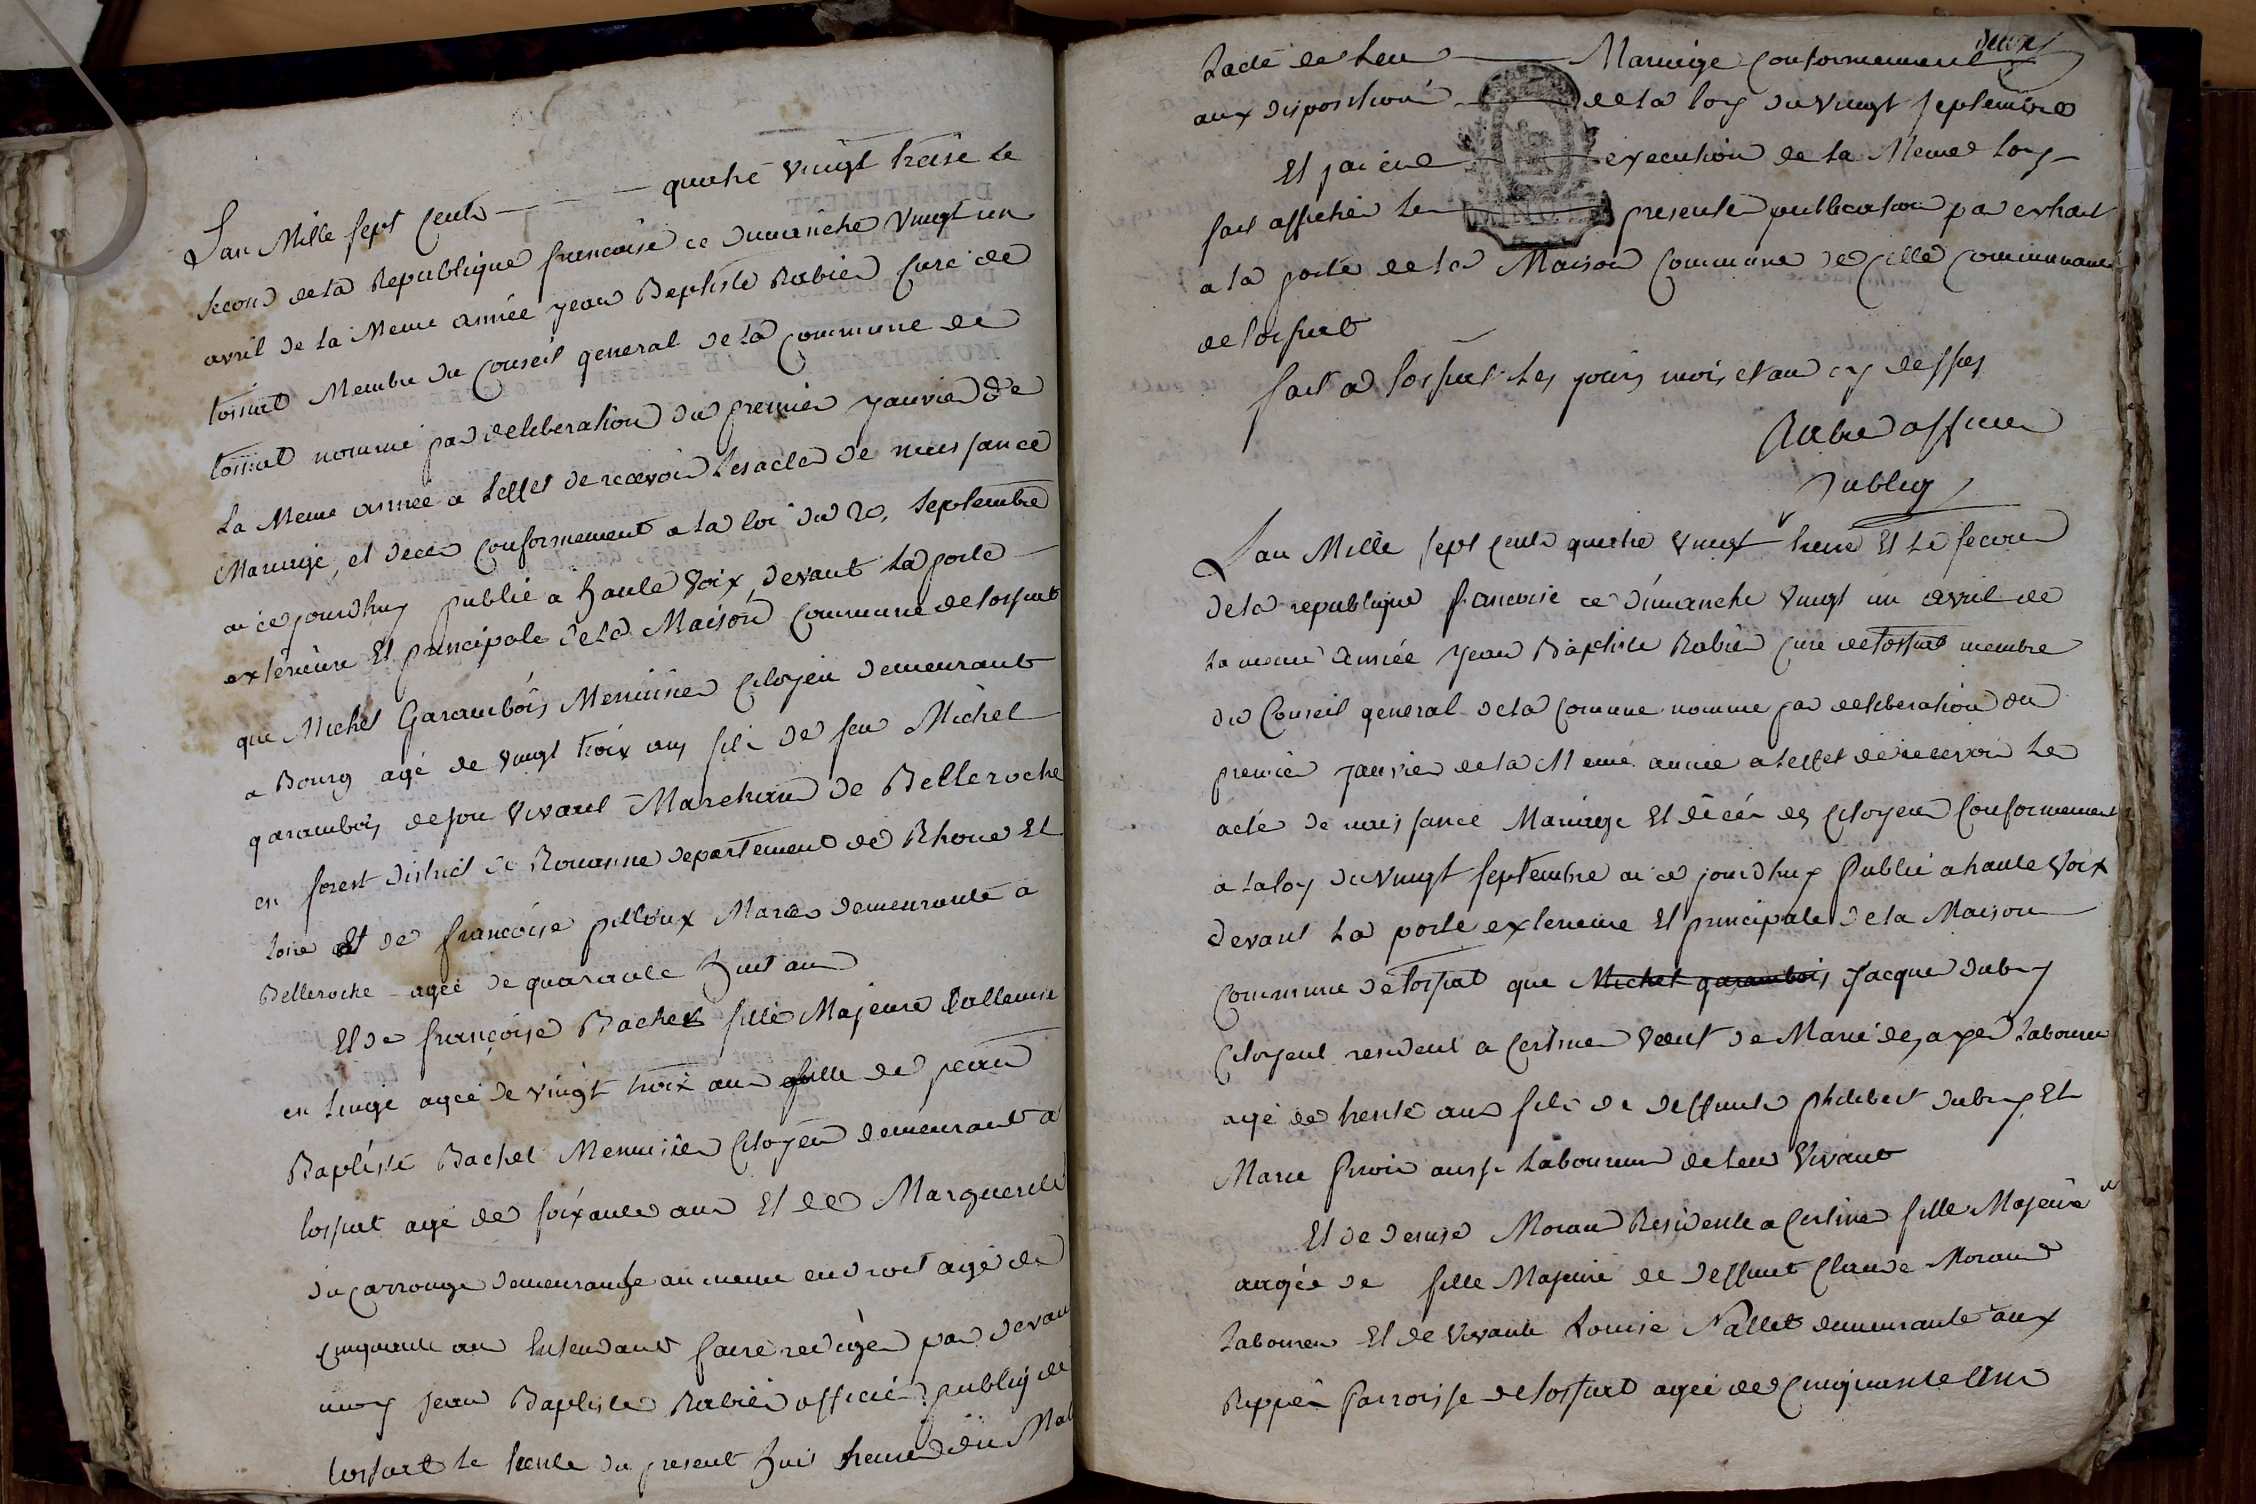 Lan Mille sept Cents quatre vingt treise Le
second dela Republique francoise ce dimanche Vingt un
avril de la Meme année jean Baptiste Rabier Curé de
tossiat Membre du Conseil general de la Commune de
tossiat nommé par deliberation du premier janvier de
La Meme année a Leffet de recevoir Les acte de naissance
Mariage, et deces Conformement a la loi du 20. Septembre
ai cejourdhuy publié a haute Voix devant La porte
exterieure Et principale dela Maison Commune de tossiat
que Michel Garambois Menuisier Citoyen demeurant
a Bourg agé de Vingt troix ans fils de feu Michel
garambois de son Vivant Marchand de Belleroche
en forest district de Rouanne departement de Rhone Et
Loire Et de francoise pilloux Marie demeurante a
Belleroche agée de quarante huit ans
Et de françoise Bachet fille Majeure
en Linge agée de vingt troix ans fille de jean
Baptiste Bachet Menuisier Citoyen demeurant a
tossiat agé de soixante ans Et de Marguerite
du Carrouge demeurante au meme endroit agé de
Cinquante ans Entendant faire rediger par devan
moy jean Baptiste Rabier officier publiq de
tossiat Le trente du present huit heure du Mat
deux
Lacte de Leur Mariage Conformement
aux dispositions de la loy du Vingt septembre
Et jai en execution de la Meme Loy
fait afficher La presente publication par extrait
a la porte de la Maison Commune de Cette Communauté
de tossiat
fait a tossiat Les jours mois et an cy dessus
Rabier officier
publiq
Lan Mille sept Cents quatre Vingt treise Et Le second
dela republique francoise ce dimanche Vingt un avril de
La meme année jean Baptiste Rabier Curé de tossiat membre
du Conseil general dela Comune nomme par deliberation du
premier janvier dela Meme année a Leffet de recevoir Les
acte de naissance Mariage Et décés des Citoyens Conformement
a La loy du Vingt septembre ai ce jourdhuy publié a haute Voix
devant La porte exterieure Et principale de la Maison
Commune de tossiat que Michel garambois jacque dubuy
Citoyent resident a Certine Veuf de Marie Labourer
agé de trente ans fils de deffunts philibert dubuy Et
Marie aussy Laboureur de Leur Vivant
Et de denise Morand Residente a Certine fille Majeure
augée de fille Majeure de deffunt Claude Morand
Laboureur Et de Vivante Louise Nallet demeurante aux
Rippes Parroisse de tossiat agée de Cinquante Ans